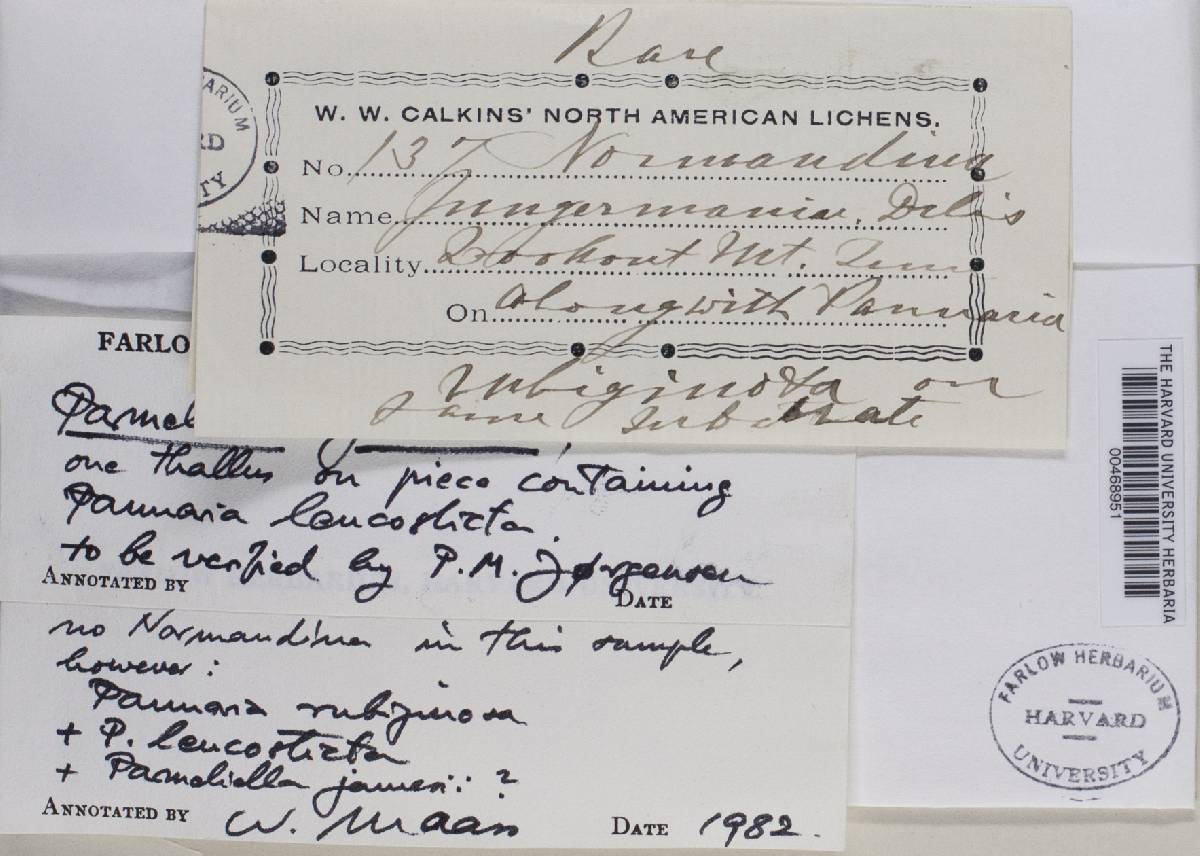 Rare
W. W. CALKINS' NORTH AMERICAN LICHENS.
No. 137 Normandina
Name Jungermaniae, Delis
Locality Lookout Mt. Tenn
On Along with Pannaria
rubiginosa on
same substrate
ARIUM
RD
ITY
FARLO
Parmel
one thallus on piece containing
Pannaria leucosticta.
to be verified by P. M. Jørgensen
ANNOTATED BY
DATE
no Normandina in this sample,
however:
Pannaria rubiginosa
+ P. leucosticta
+ Parmeliella jamesii ?
ANNOTATED BY W. Maass DATE 1982.
THE HARVARD UNIVERSITY HERBARIA
00468951
FARLOW HERBARIUM
HARVARD
UNIVERSITY